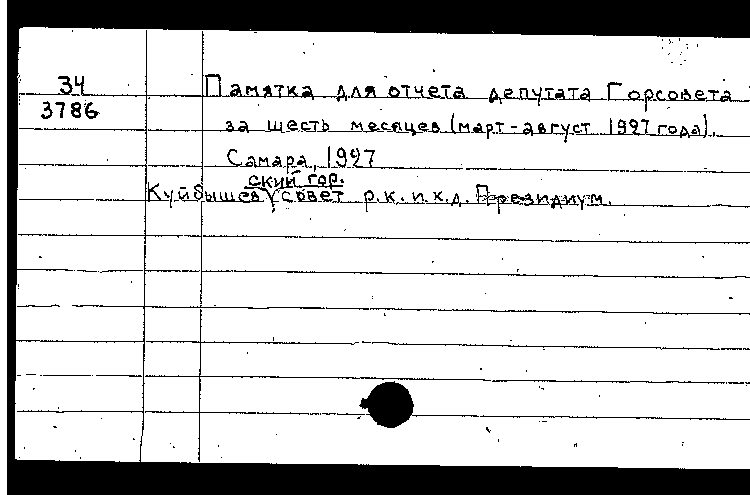 34
3786
Памятка для отчета депутата Горсовета
за шесть месяцев (март-август 1927 года).
Самара, 1927
ский гор.
Куйбышев совет р.к.и.к.д. Президиум.